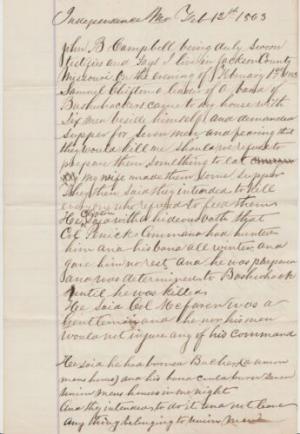 Independence Mo Feb 12th 1863
John B Campbell being duly Sworn
Testifies and Says I live in Jackson County
Missouri On the evening of February 1st 1863
Samuel Clifton a leader of a band of
Bushwhackers came to my house with
Six men beside himself and demanded
Supper for Seven men and fearing that
they would kill me should we refuse to
prepare them Something to eat
my wife made them Some Supper
They then Said they intended to kill
everyone who refused to feed them
He Clifton Says with a hideous oath that
Col Penick's Command had hunted
him and his band all winter and
gave him no rest And he was prepared
and was determined to Bushwhack
until he was killed
He Said Col McFaren was a
Gentleman and he nor his men
would not injure any of his Command
He said he had burned union
mens house and his band could burn Seven
Union mens houses in one night
And they intended to do it and not leave
Any thing belonging to Union Men